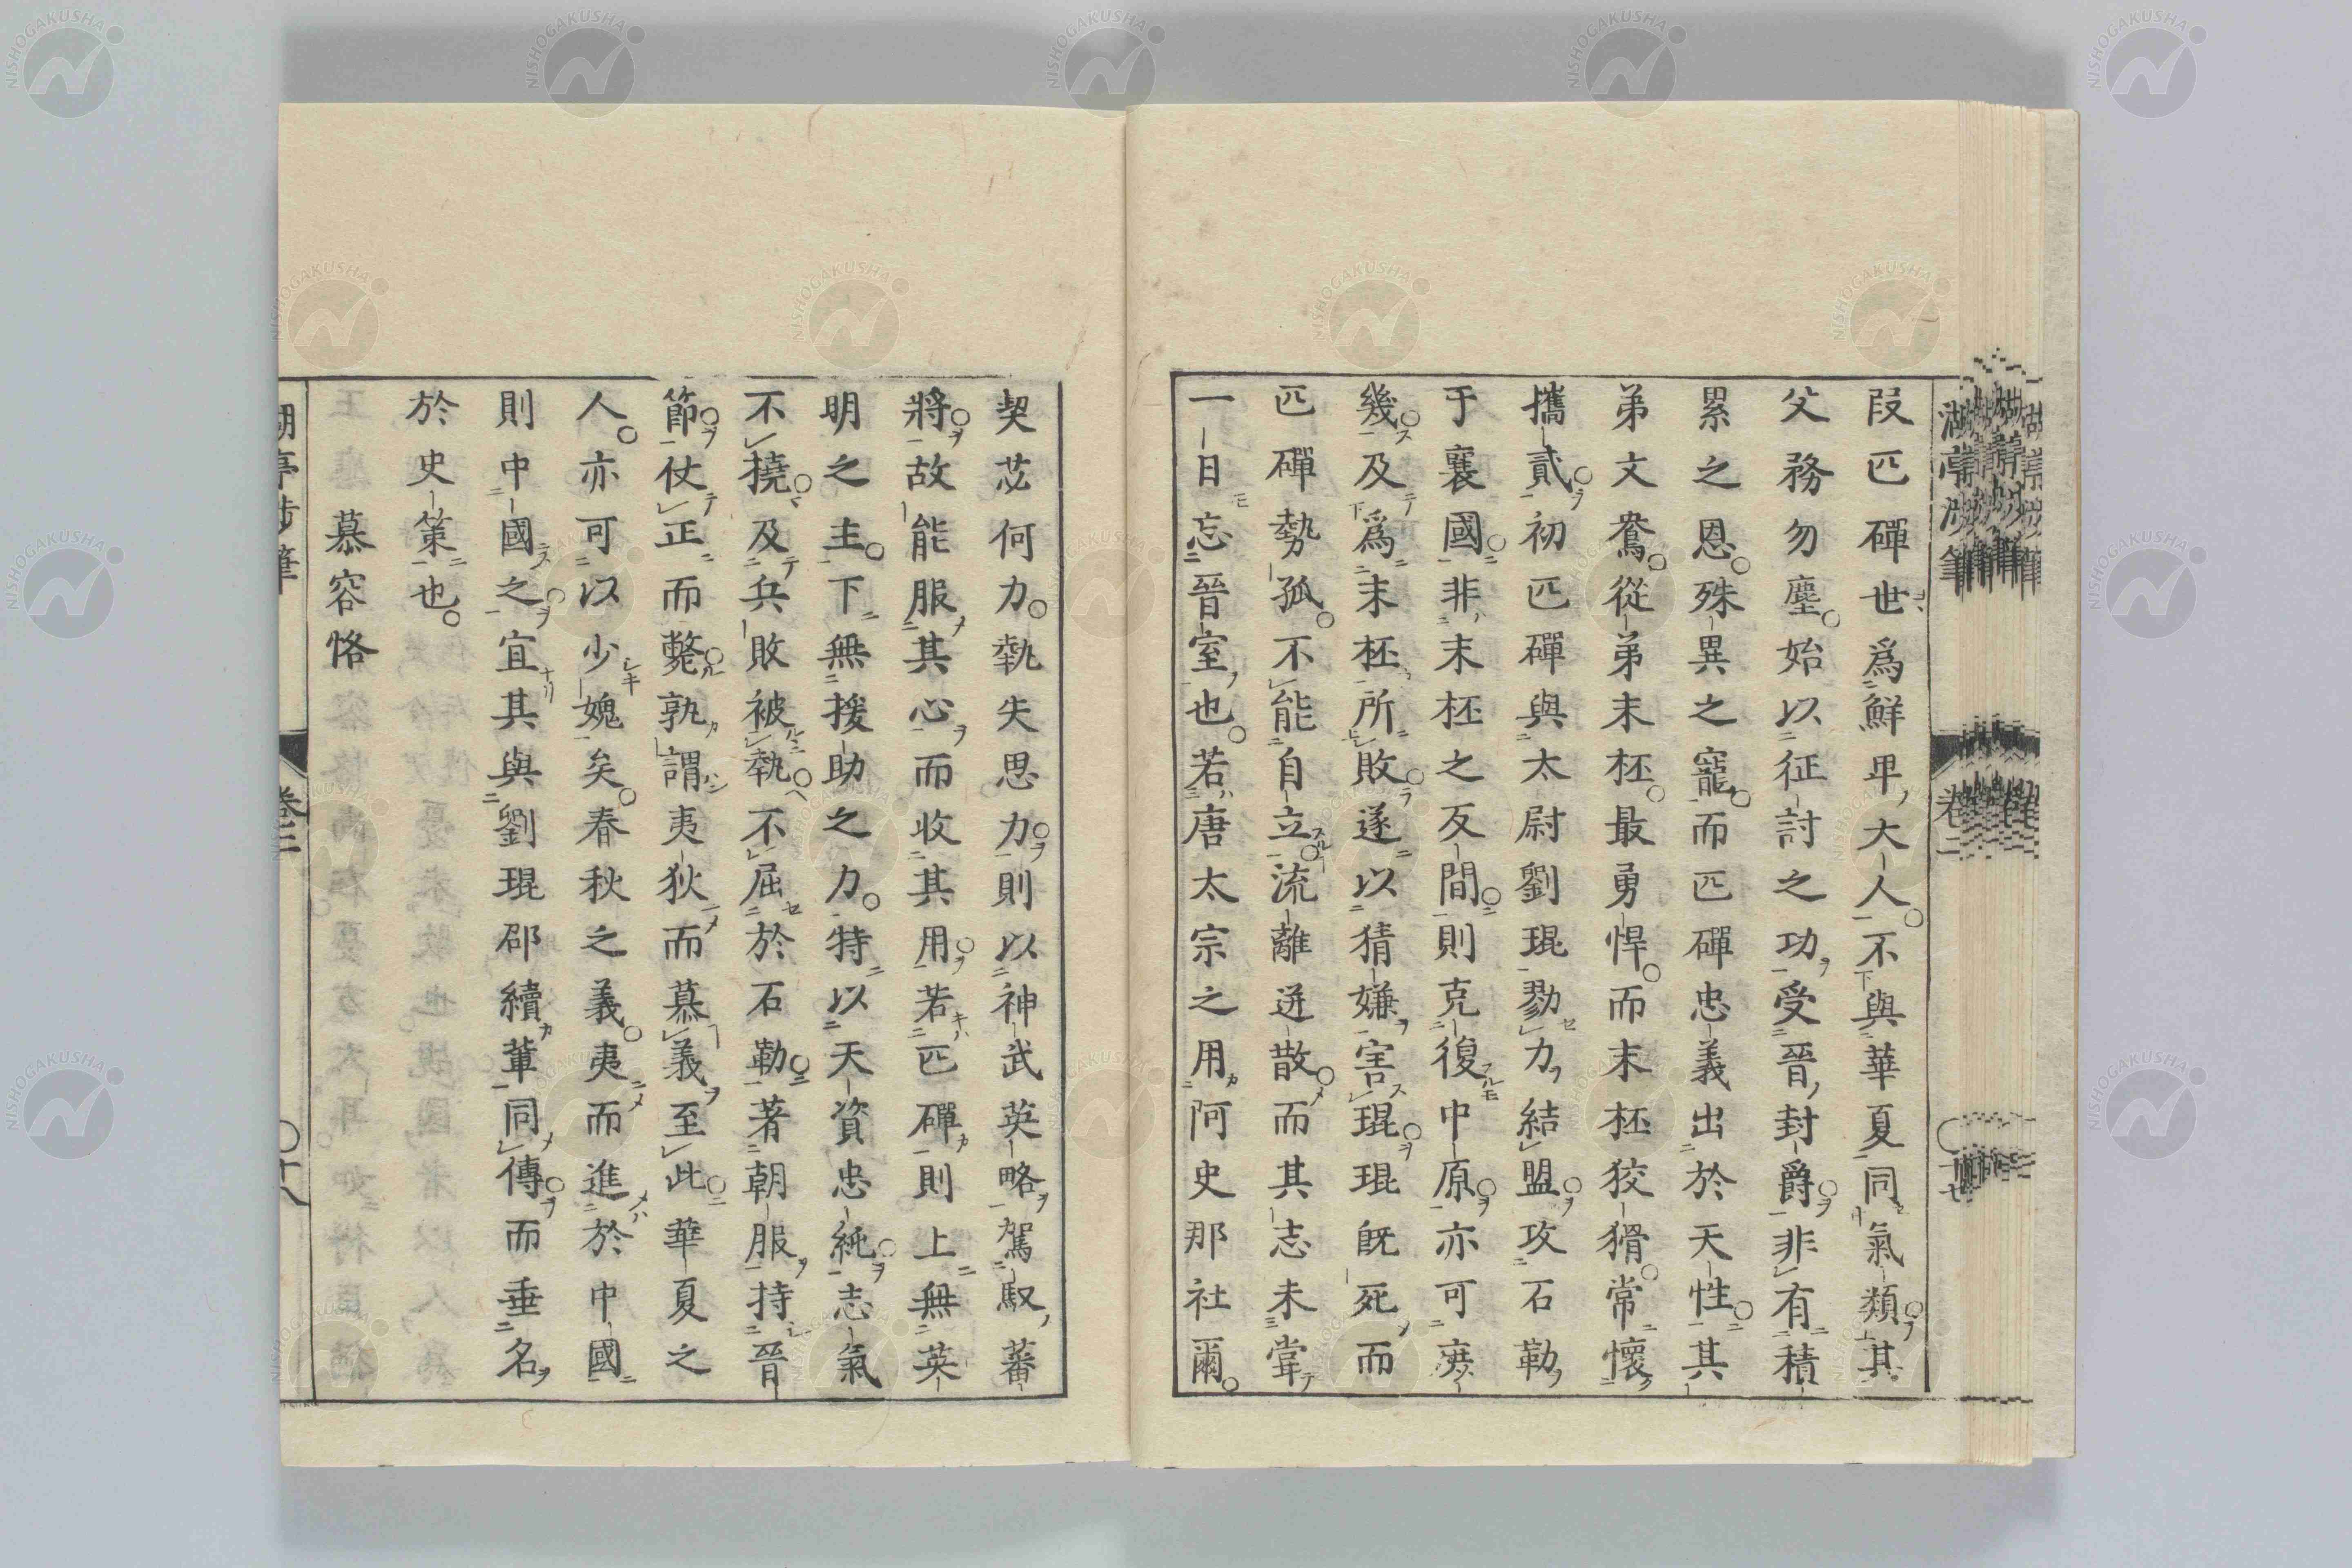 段匹磾世爲鮮卑大人不與華夏同氣類其
父務勿塵始以征討之功受晉封爵非有積
累之恩殊異之寵而匹磾忠義出於天性其
弟文鴦從弟末柸最勇悍而末柸狡猾常懷
攜貳初匹磾與太尉劉琨勠力結盟攻石勒
于襄國非末柸之反間則克復中原亦可庶
幾及爲末柸所敗遂以猜嫌害琨琨既死而
匹磾勢孤不能自立流離迸散而其志未甞
一日忘晉室也若唐太宗之用阿史那社爾
契苾何力執失思力則以神武英略駕馭蕃
將故能服其心而收其用若匹磾則上無英
明之主下無援助之力特以天資忠純志氣
不撓及兵敗被執不屈於石勒著朝服持晉
節仗正而斃孰謂夷狄而慕義至此華夏之
人亦可以少媿矣春秋之義夷而進於中國
則中國之宜其與劉琨邵續軰同傳而垂名
於史策也
慕容恪
湖亭涉筆
卷二
〇十八
NISHOGAKUSHA